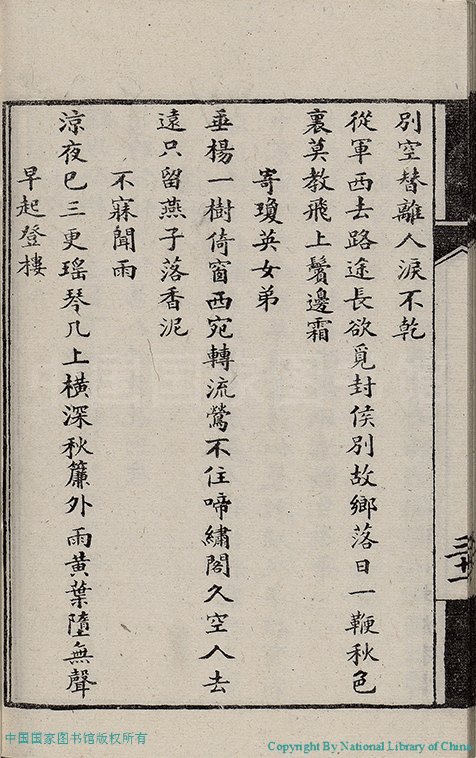 別空替離人淚不乾
從軍西去路途長欲覓封侯別故鄉落日一鞭秋色
裏莫教飛上鬢邊霜
寄瓊英女弟
垂楊一樹倚窗西宛轉流鶯不住啼繡閣久空人去
遠只留燕子落香泥
不寐聞雨
涼夜已三更瑶琴几上橫深秋簾外雨黄葉墮無聲
早起登樓
中国国家图书馆版权所有
Copyright By National Library of China